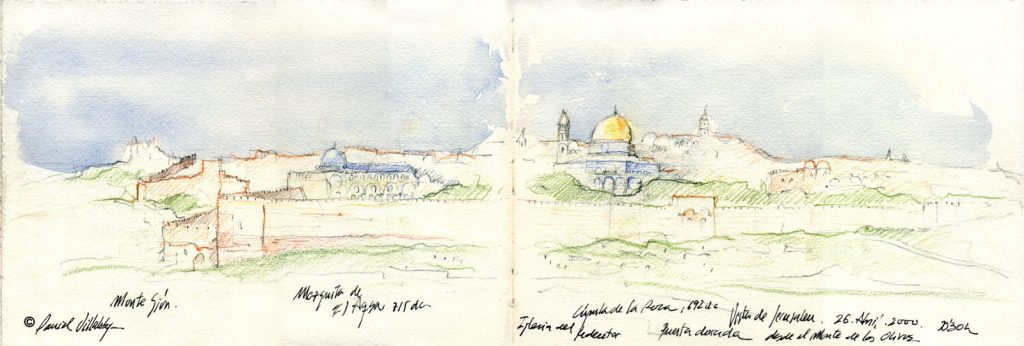 Monte Sión.
Mezquita de
El Aqsa 715 dc
© Daniel Villalobos
Cúpula de la Roca, 692 d.c
Iglesia del
Redentor
Puerta dorada
Vista de Jerusalem. 26. Abril. 2000.
desde el Monte de los Olivos